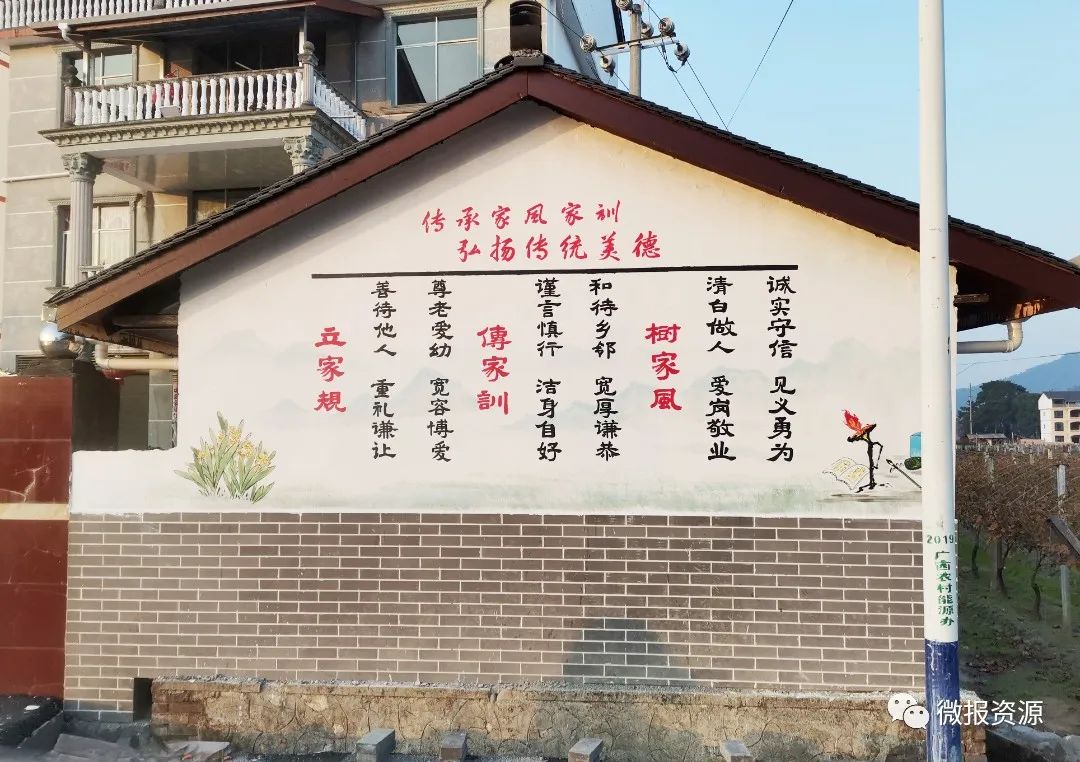 传承家風家訓
弘扬传统美德
立家規
善待他人 重礼谦让
尊老爱幼 宽容博爱
傳家訓
谨言慎行 洁身自好
和待乡邻 宽厚谦恭
樹家風
清白做人 爱岗敬业
诚实守信 见义勇为
2019
广西农村能源办
微报资源